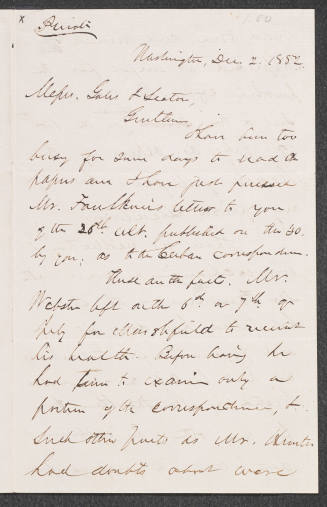 x
Private
Washington, Dec. 2. 1852
Messrs. Gales & Seaton,
Gentlemen,
I have been too
busy for some days to read a
paper and I have just perused
Mr. Faulkner's letter to you
of the 26th ult. published on the 30.
by you; as to the Cuban correspondence.
These are the facts. Mr.
Webster left on the 6th or 7th of
July for Marshfield to recruit
his health. Before leaving he
had time to examine only a
portion of the correspondence, &
such other parts as Mr. Hunter
had doubts about were